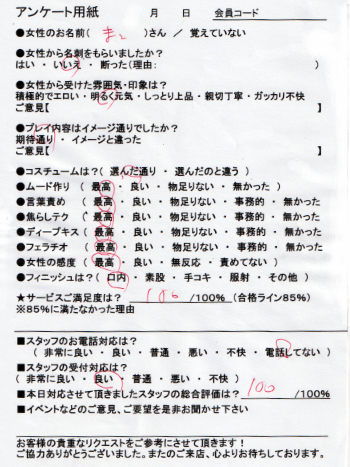 アンケート用紙　　月　　日　　会員コード
●女性のお名前（　まこ　）さん　／　覚えていない
●女性から名刺をもらいましたか？
はい ・ いいえ ・ 断った（理由：　　）
●女性から受けた雰囲気・印象は？
積極的でエロい ・ 明るく元気 ・ しっとり上品 ・ 親切丁寧 ・ ガッカリ不快
ご意見【　　】
●プレイ内容はイメージ通りでしたか？
期待通り ・ イメージと違った
ご意見【　　】
●コスチュームは？（ 選んだ通り ・ 選んだのと違う ）
●ムード作り （ 最高 ・ 良い ・ 物足りない ・ 無かった ）
●言葉責め （ 最高 ・ 良い ・ 物足りない ・ 事務的 ・ 無かった ）
●焦らしテク （ 最高 ・ 良い ・ 物足りない ・ 事務的 ・ 無かった ）
●ディープキス （ 最高 ・ 良い ・ 物足りない ・ 事務的 ・ 無かった ）
●フェラチオ （ 最高 ・ 良い ・ 物足りない ・ 事務的 ・ 無かった ）
●女性の感度 （ 最高 ・ 良い ・ 無反応 ・ 責めてない ）
●フィニッシュは？（ 口内 ・ 素股 ・ 手コキ ・ 服射 ・ その他 ）
★サービスご満足度は？　100　/100% （合格ライン85%）
※85%に満たなかった理由
■スタッフのお電話対応は？
（ 非常に良い ・ 良い ・ 普通 ・ 悪い ・ 不快 ・ 電話してない ）
■スタッフの受付対応は？
（ 非常に良い ・ 良い ・ 普通 ・ 悪い ・ 不快 ）
■本日対応させて頂きましたスタッフの総合評価は？　100　/100%
■イベントなどのご意見、ご要望を是非お聞かせ下さい
お客様の貴重なリクエストをご参考にさせて頂きます！
ご協力ありがとうございました。またのご来店、心よりお待ちしております。